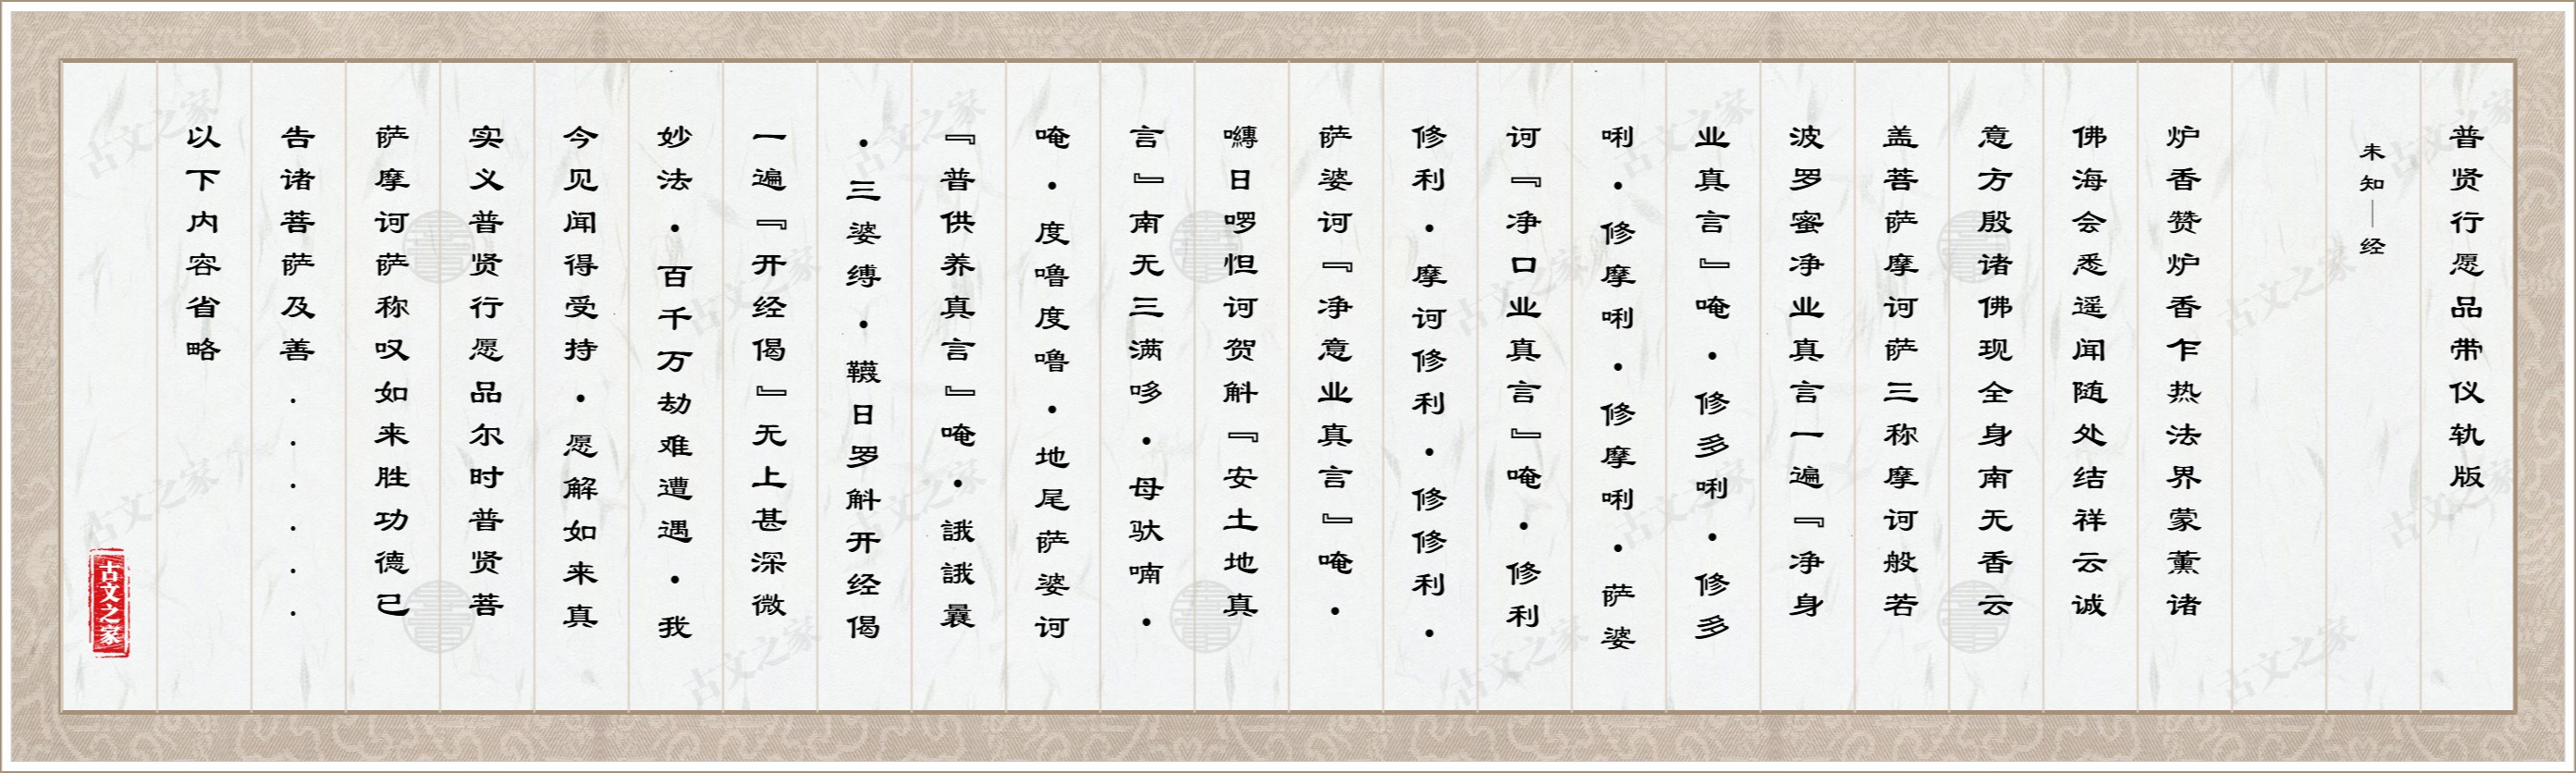 普贤行愿品带仪轨版
未知｜经
炉香赞炉香乍热法界蒙薰诸
佛海会悉遥闻随处结祥云诚
意方殷诸佛现全身南无香云
盖菩萨摩诃萨三称摩诃般若
波罗蜜净业真言一遍『净身
业真言』唵·修多唎·修多
唎·修摩唎·修摩唎·萨婆
诃『净口业真言』唵·修利
修利·摩诃修利·修修利·
萨婆诃『净意业真言』唵·
嚩日啰怛诃贺斛『安土地真
言』南无三满哆·母驮喃·
唵·度噜度噜·地尾萨婆诃
『普供养真言』唵·誐誐曩
·三婆缚·韈日罗斛开经偈
一遍『开经偈』无上甚深微
妙法·百千万劫难遭遇·我
今见闻得受持·愿解如来真
实义普贤行愿品尔时普贤菩
萨摩诃萨称叹如来胜功德已
告诸菩萨及善......
以下内容省略
古文之家